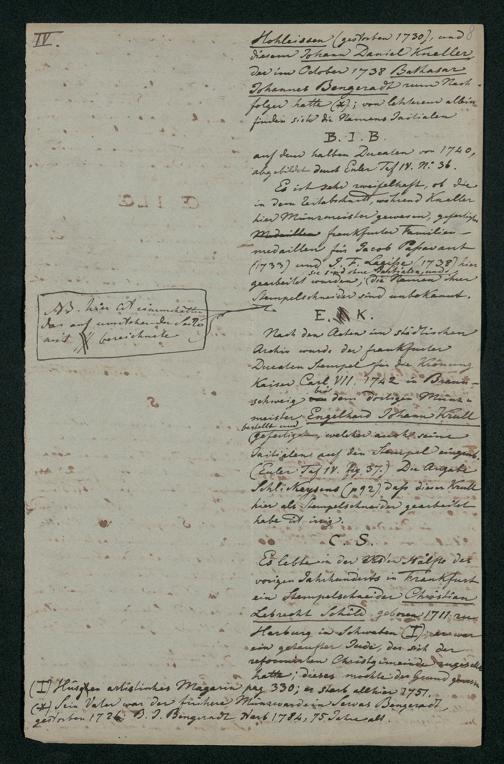 IV.
8
Hohleisen (gestorben 1730), und
diesem Johann Daniel Kneller,
der im October 1738 Balthasar
Johannes Bengeradt zum Nach-
folger hatte (*); von letzterem allein
finden sich die Namens Initialen
B. I. B.
auf dem halben Ducaten von 1740,
abgebildet durch Euler Taf IV. No 36.
Es ist sehr zweifelhaft, ob die
in dem Zeitabschnitt, während Kneller
hier Münzmeister gewesen, gefertigten
Medaillen frankfurter Familien-
medaillen für Jacob Passavant
(1733) und J. F. (1738) hier
gearbeitet wurden; sie sind ohne Initialen, und die Namen ihrer
Stempelschneider sind unbekannt.
NB. hier ist einzuschalten
das auf umstehender Seite
mit bezeichnete
E. K.
Nach den Acten im städtischen
Archiv wurde der frankfurter
Ducaten Stempel für die Krönung
Kaiser Carl VII. 1742 in Braun-
schweig bei dem dortigen Münz-
meister Engelhard Johann Krull
bestellt und
gefertigt, welcher auch seine
Initialen auf den Stempel eingrub.
(Euler Taf IV. Fig 37.) Die Angabe
(p 92) dass dieser Krull
hier als Stempelschneider gearbeitet
habe ist irrig.
C. S.
Es lebte in der Hälfte des
vorigen Jahrhunderts in Frankfurt
ein Stempelschneider Christian
Lebrecht Schild, geboren 1711 zu
Harburg in Schwaben (I), er war
ein getaufter Jude, der sich der
reformirten Christgemeinde
hatte; dieses mochte der Grund
(I) Hüsgen artistisches Magazin pag 330; er starb allhier 1751.
(*) Sein Vater war der frühere Münzwardein Servas Bengeradt,
gestorben 1726. B. J. Bengeradt starb 1784, 75 Jahre alt.